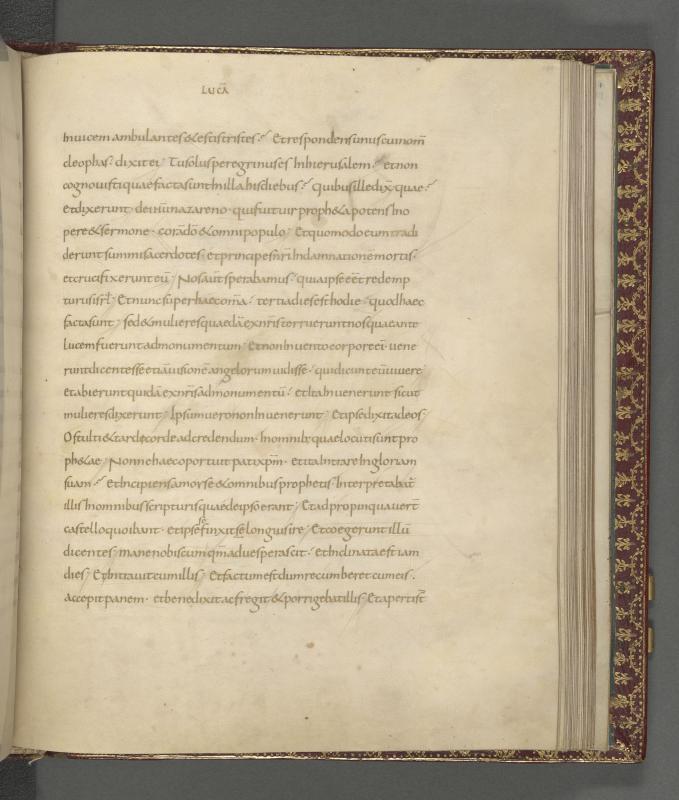 LUCĀ
Inuicem ambulantes & estis tristes? Et respondens unus cui nom̄
cleophas · dixit ei Tu solus peregrinus es In hierusalem · et non
cognouisti quae facta sunt In illa his diebus? quibus ille dix̄ quae?
et dixerunt · de ih̄u nazareno · qui fuit uir proph&a potens In o
pere & sermone · corā dō & omni populo; Et quomodo eum tradi
derunt summi sacerdotes · et principes nr̄i In damnationē mortis ·
et crucifixerunt eū; Nos aūt sperabamus · quia ipse eēt redemp
turus isrl̄ · Et nunc sup̄ haec om̄a · tertia dies est hodie quod haec
facta sunt; sed & mulieres quaedā ex nr̄is terruerunt nos quae ante
lucem fuerunt ad monumentum; Et non Inuento corpore ei: uene
runt dicentes se etiā uisionē angelorum uidisse · qui dicunt eū uiuere
et abierunt quidā ex nr̄is ad monumentū · et Ita Inuenerunt sicut
mulieres dixerunt; Ipsum uero non Inuenerunt; Et ipse dixit ad eos ·
O stulti & tardi corde ad credendum · In omnib; quae locuti sunt pro
ph&ae; Nonne haec oportuit pati xp̄m · et ita Intrare In gloriam
suam? et Incipiens a morse & omnibus prophetis · Interpretabat̄
illis In omnibus scripturis quae de ipso erant; Et ad propinquauer̄t
castello quo ibant · et ipse finxit se longius ire; Et coegerunt illū
dicentes; mane nobiscum qm̄ aduesperascit · et Inclinata est iam
dies; Et Intrauit cum illis; Et factum est dum recumberet cum eis ·
accepit panem · et benedixit ac fregit & porrigebat illis; Et aperti st̄